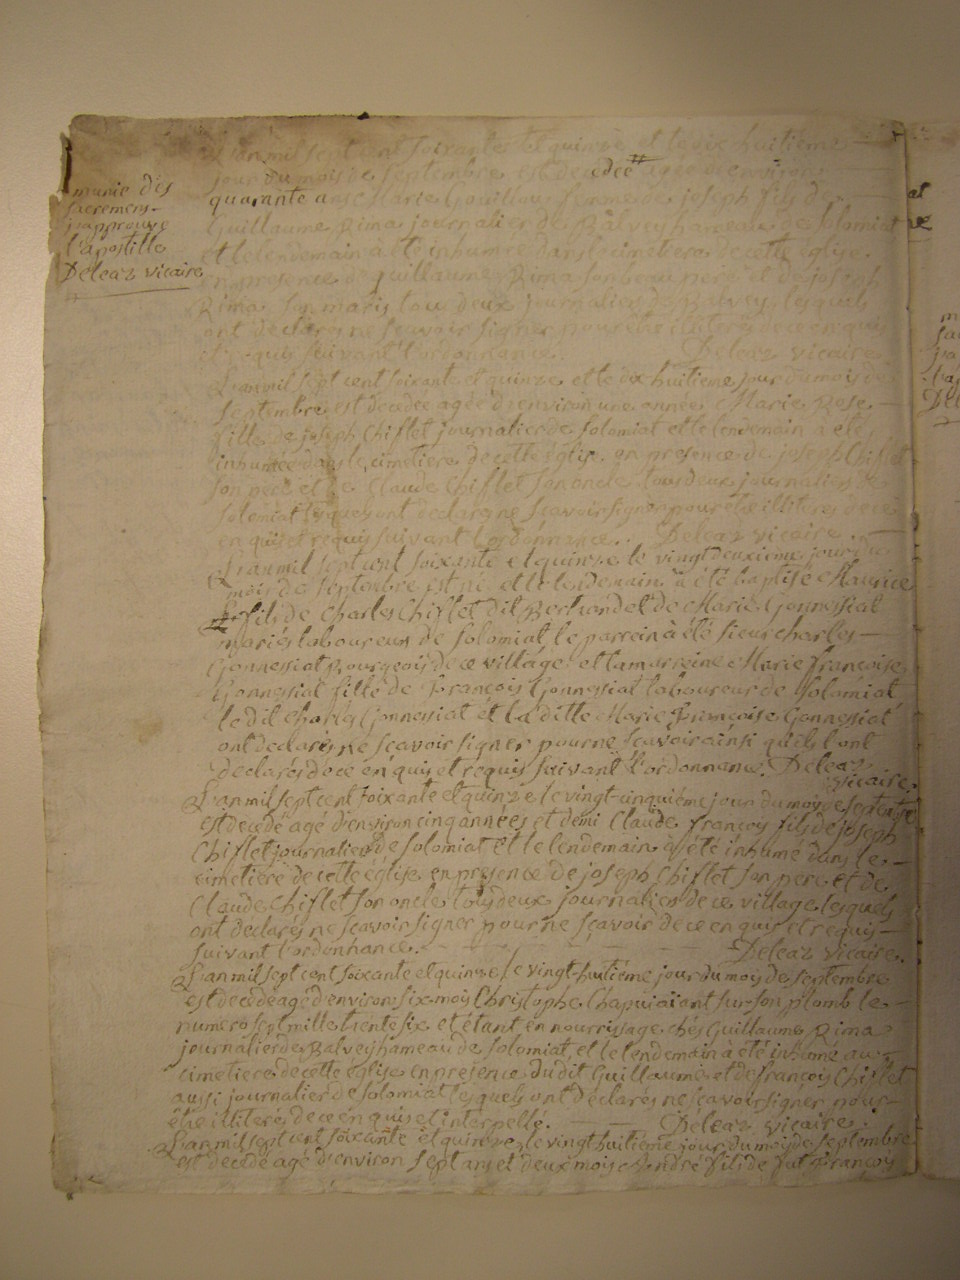 munie des
sacremens.
j'approuve
l'apostille
Deleaz vicaire
L'an mil sept cent soixante et quinze et le dix huitième
jour du mois de septembre est decedée # agée d'environ
quarante ans Marie Gouillou femme de joseph fils de
Guillaume Rima journalier de Balvey hameau de Solomiat
et le lendemain à été inhumée dans le cimetiere de cette église
en presence de guillaume Rima son beau pere et de joseph
Rima son maris tous deux journaliers de Balvey lesquels
ont declarés ne sçavoir signer pour être illiterés de ce enquis
et requis suivant l'ordonnance. Deleaz vicaire
L'an mil sept cent soixante et quinze et le dix huitieme jour du mois de
septembre est decedée agée d'environ une année Marie Rose
fille de joseph Chiflet journalier de Solomiat et le lendemain à été
inhumée dans le cimetiere de cette église en presence de joseph Chiflet
son pere et de Claude Chiflet son oncle tous deux journaliers de
Solomiat lesquels ont declarés ne sçavoir signer pour etre illiterés de ce
enquis et requis suivant l'ordonnance. Deleaz vicaire.
L'an mil sept cent soixante et quinze le vingt deuxieme jour du
mois de septembre est né et le lendemain à été baptisé Maurice
fils de Charles Chiflet dit Bertrand et de Marie Gonnessiat
mariés laboureurs de Solomiat le parrein à été sieur charles
Gonnessiat Bourgeois de ce village et la marreine Marie françoise
Gonnessiat fille de françois Gonnessiat laboureur de Solomiat
le dit Charles Gonnessiat et la ditte Marie françoise Gonnessiat
ont declarés ne sçavoir signer pour ne sçavoir ainsi qu'ils l'ont
declarés de ce enquis et requis suivant l'ordonnance. Deleaz
vicaire.
L'an mil sept cent soixante et quinze le vingt-cinquiéme jour du moys de septembre
est decedé agé d'environ cinq années et demi Claude françois fils de joseph
Chiflet journalier de Solomiat et le lendemain à été inhumé dans le
cimetiere de cette église en presence de joseph Chiflet son pere et de
Claude Chiflet son oncle tous deux journaliers de ce village lesquels
ont declarés ne sçavoir signer pour ne sçavoir de ce enquis et requis
suivant l'ordonnance. Deleaz vicaire.
L'an mil sept cent soixante et quinze le vingt-huitiéme jour du moys de septembre
est decedé agé d'environ six mois Christophe Chapui aiant sur son plomb le
numero sept mille trente six et étant en nourrissage chés Guillaume Rima
journalier de Balvey hameau de Solomiat et le lendemain à été inhumé au
cimetiere de cette église en presence dudit Guillaume et de françois Chiflet
aussi journalier de Solomiat lesquels ont declarés ne sçavoir signer pour
être illiterés de ce enquis et interpellé. Deleaz vicaire.
L'an mil sept cent soixante et quinze le vingt huitiéme jour du moys de septembre
est decedé agé d'environ sept ans et deux mois André fils de fut françois